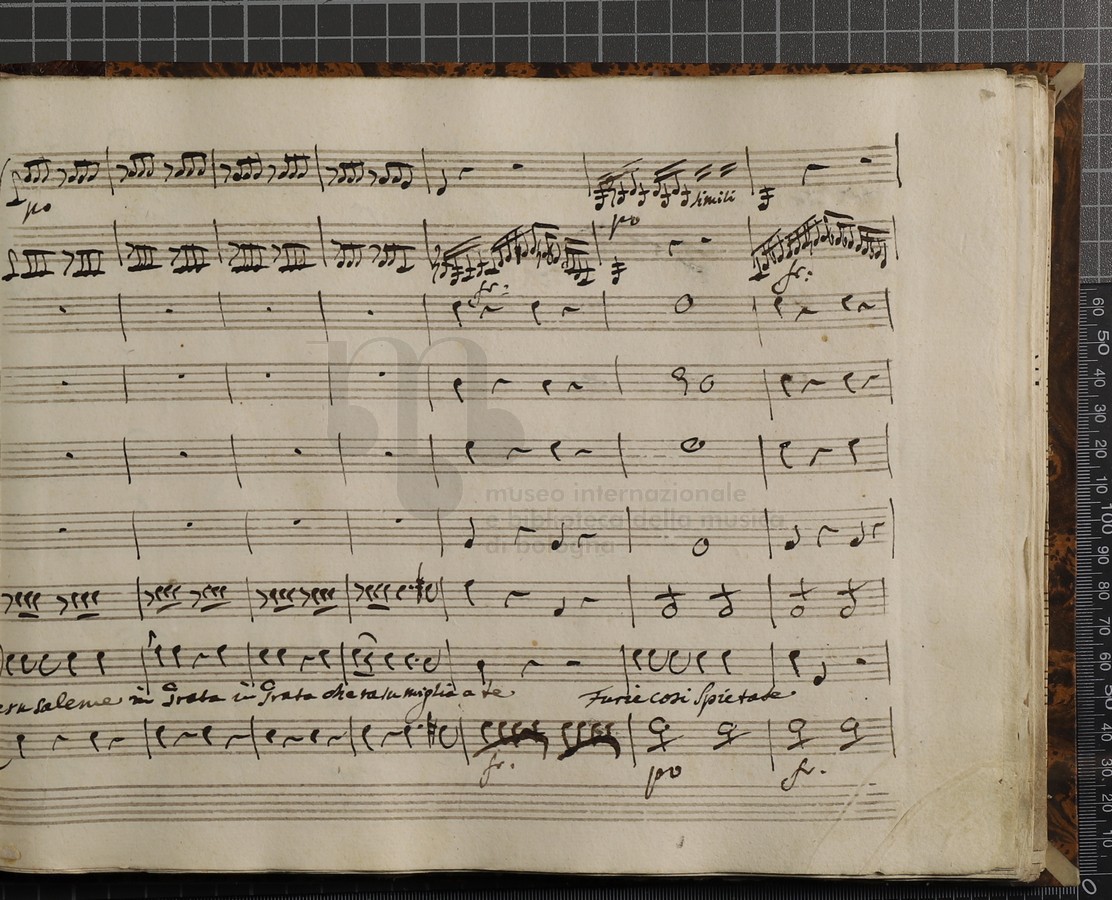 po
simili
po
fr:
fr:
museo internazionale
e biblioteca della musica
di bologna
erusaleme in Grata in Grata che rasumiglia a te Furie cosi Spietate
fr:
po
fr:
60 50 40 30 20 10 100 90 80 70 60 50 40 30 20 10 0